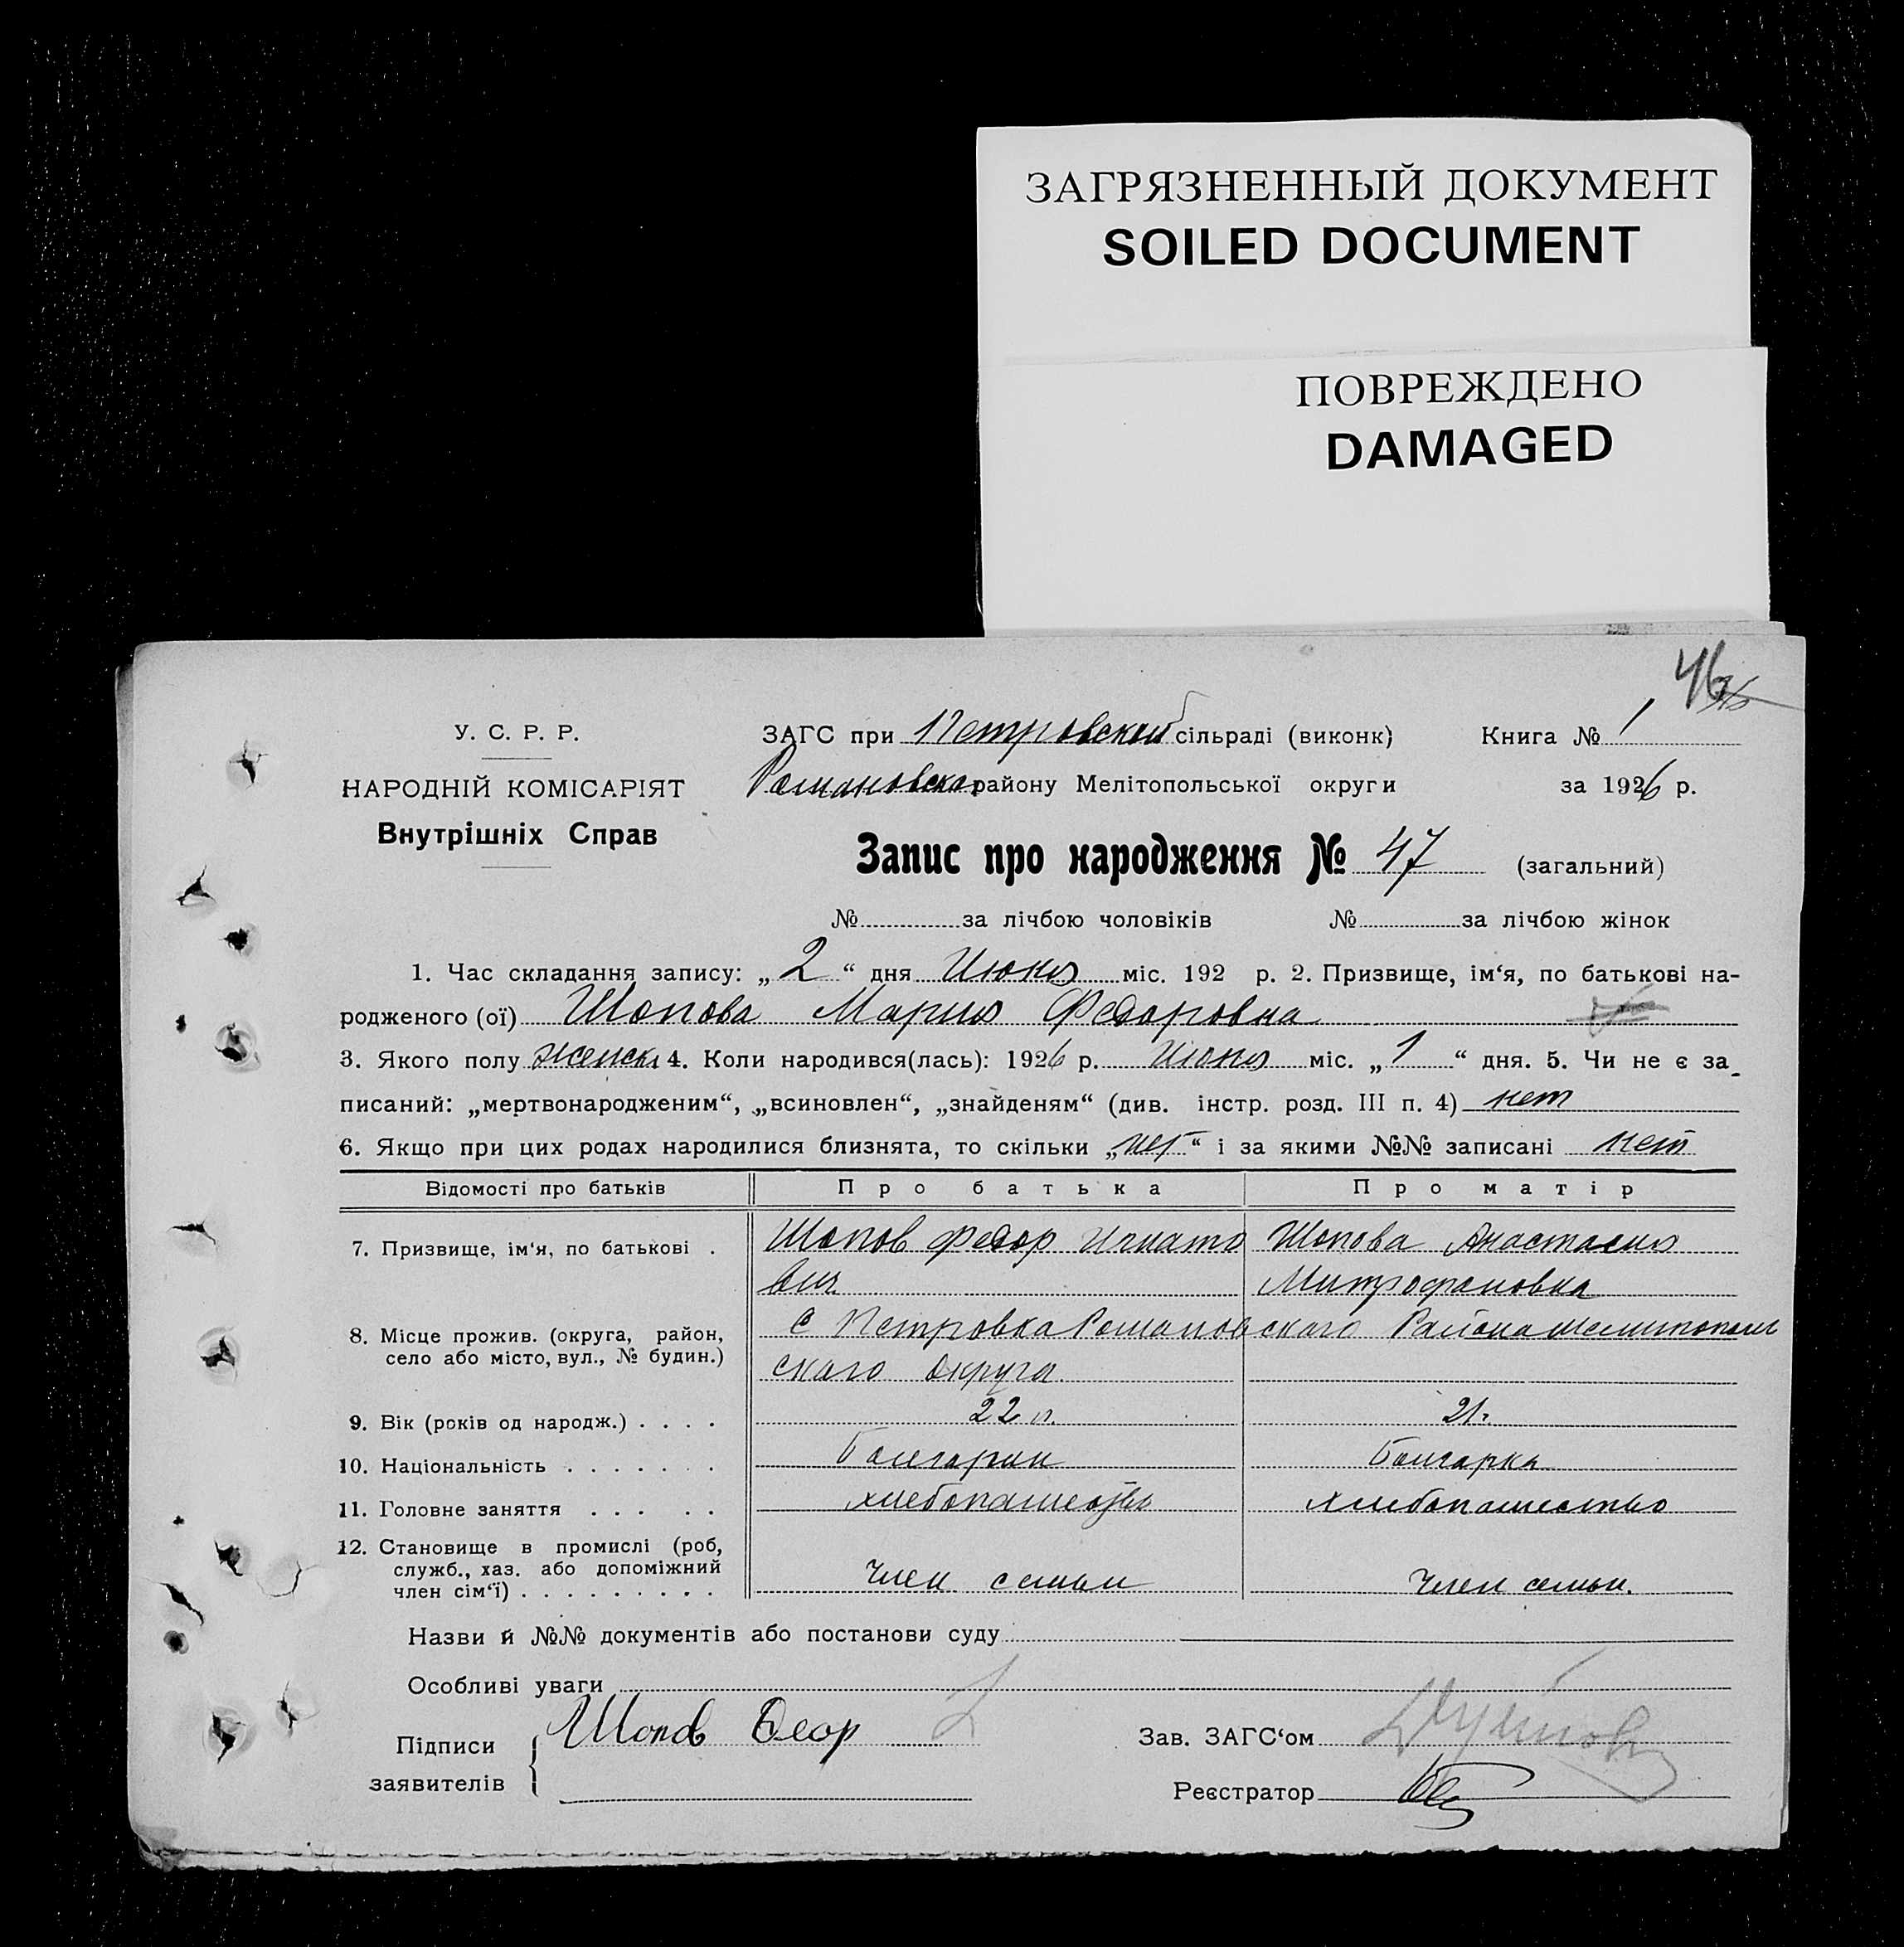 ЗАГРЯЗНЕННЫЙ ДОКУМЕНТ
SOILED DOCUMENT
ПОВРЕЖДЕНО
DAMAGED
46
У. С. Р. Р.
НАРОДНІЙ КОМІСАРІЯТ
Внутрішніх Справ
ЗАГС при Петровской сільраді (виконк) Книга № 1
Романовской району Мелітопольської округи за 1926 р.
Запис про народження № 47 (загальний)
№ за лічбою чоловіків № за лічбою жінок
1. Час складання запису: „ 2 “ дня Июня міс. 192 р. 2. Призвище, ім‘я, по батькові на-
родженого (ої) Шопова Мария Федоровна
3. Якого полу женск 4. Коли народився(лась): 1926 р. Июня міс. „ 1 “ дня. 5. Чи не є за-
писаний: „мертвонародженим“, „всиновлен“, „знайденям“ (див. інстр. розд. III п. 4) нет
6. Якщо при цих родах народилися близнята, то скільки „нет“ і за якими №№ записані нет
Відомості про батьків Про батька Про матір
7. Призвище, ім‘я, по батькові . Шопов Федор Игнато Шопова Анастасия
вич Митрофановна
8. Місце прожив. (округа, район, с Петровка Романовскаго Района Мелитополь
село або місто, вул., № будин.) скаго округа
9. Вік (років од народж.) . . . . 22 л. 21.
10. Національність . . . . . . . Болгарин Болгарка
11. Головне заняття . . . . . хлебопашество хлебопашество
12. Становище в промислі (роб,
служб., хаз. або допоміжний
член сім‘ї) . . . . . . . . . Член семьи Член семьи.
Назви й №№ документів або постанови суду
Особливі уваги
Підписи Шопов Зав. ЗАГС‘ом
заявителів Реєстратор